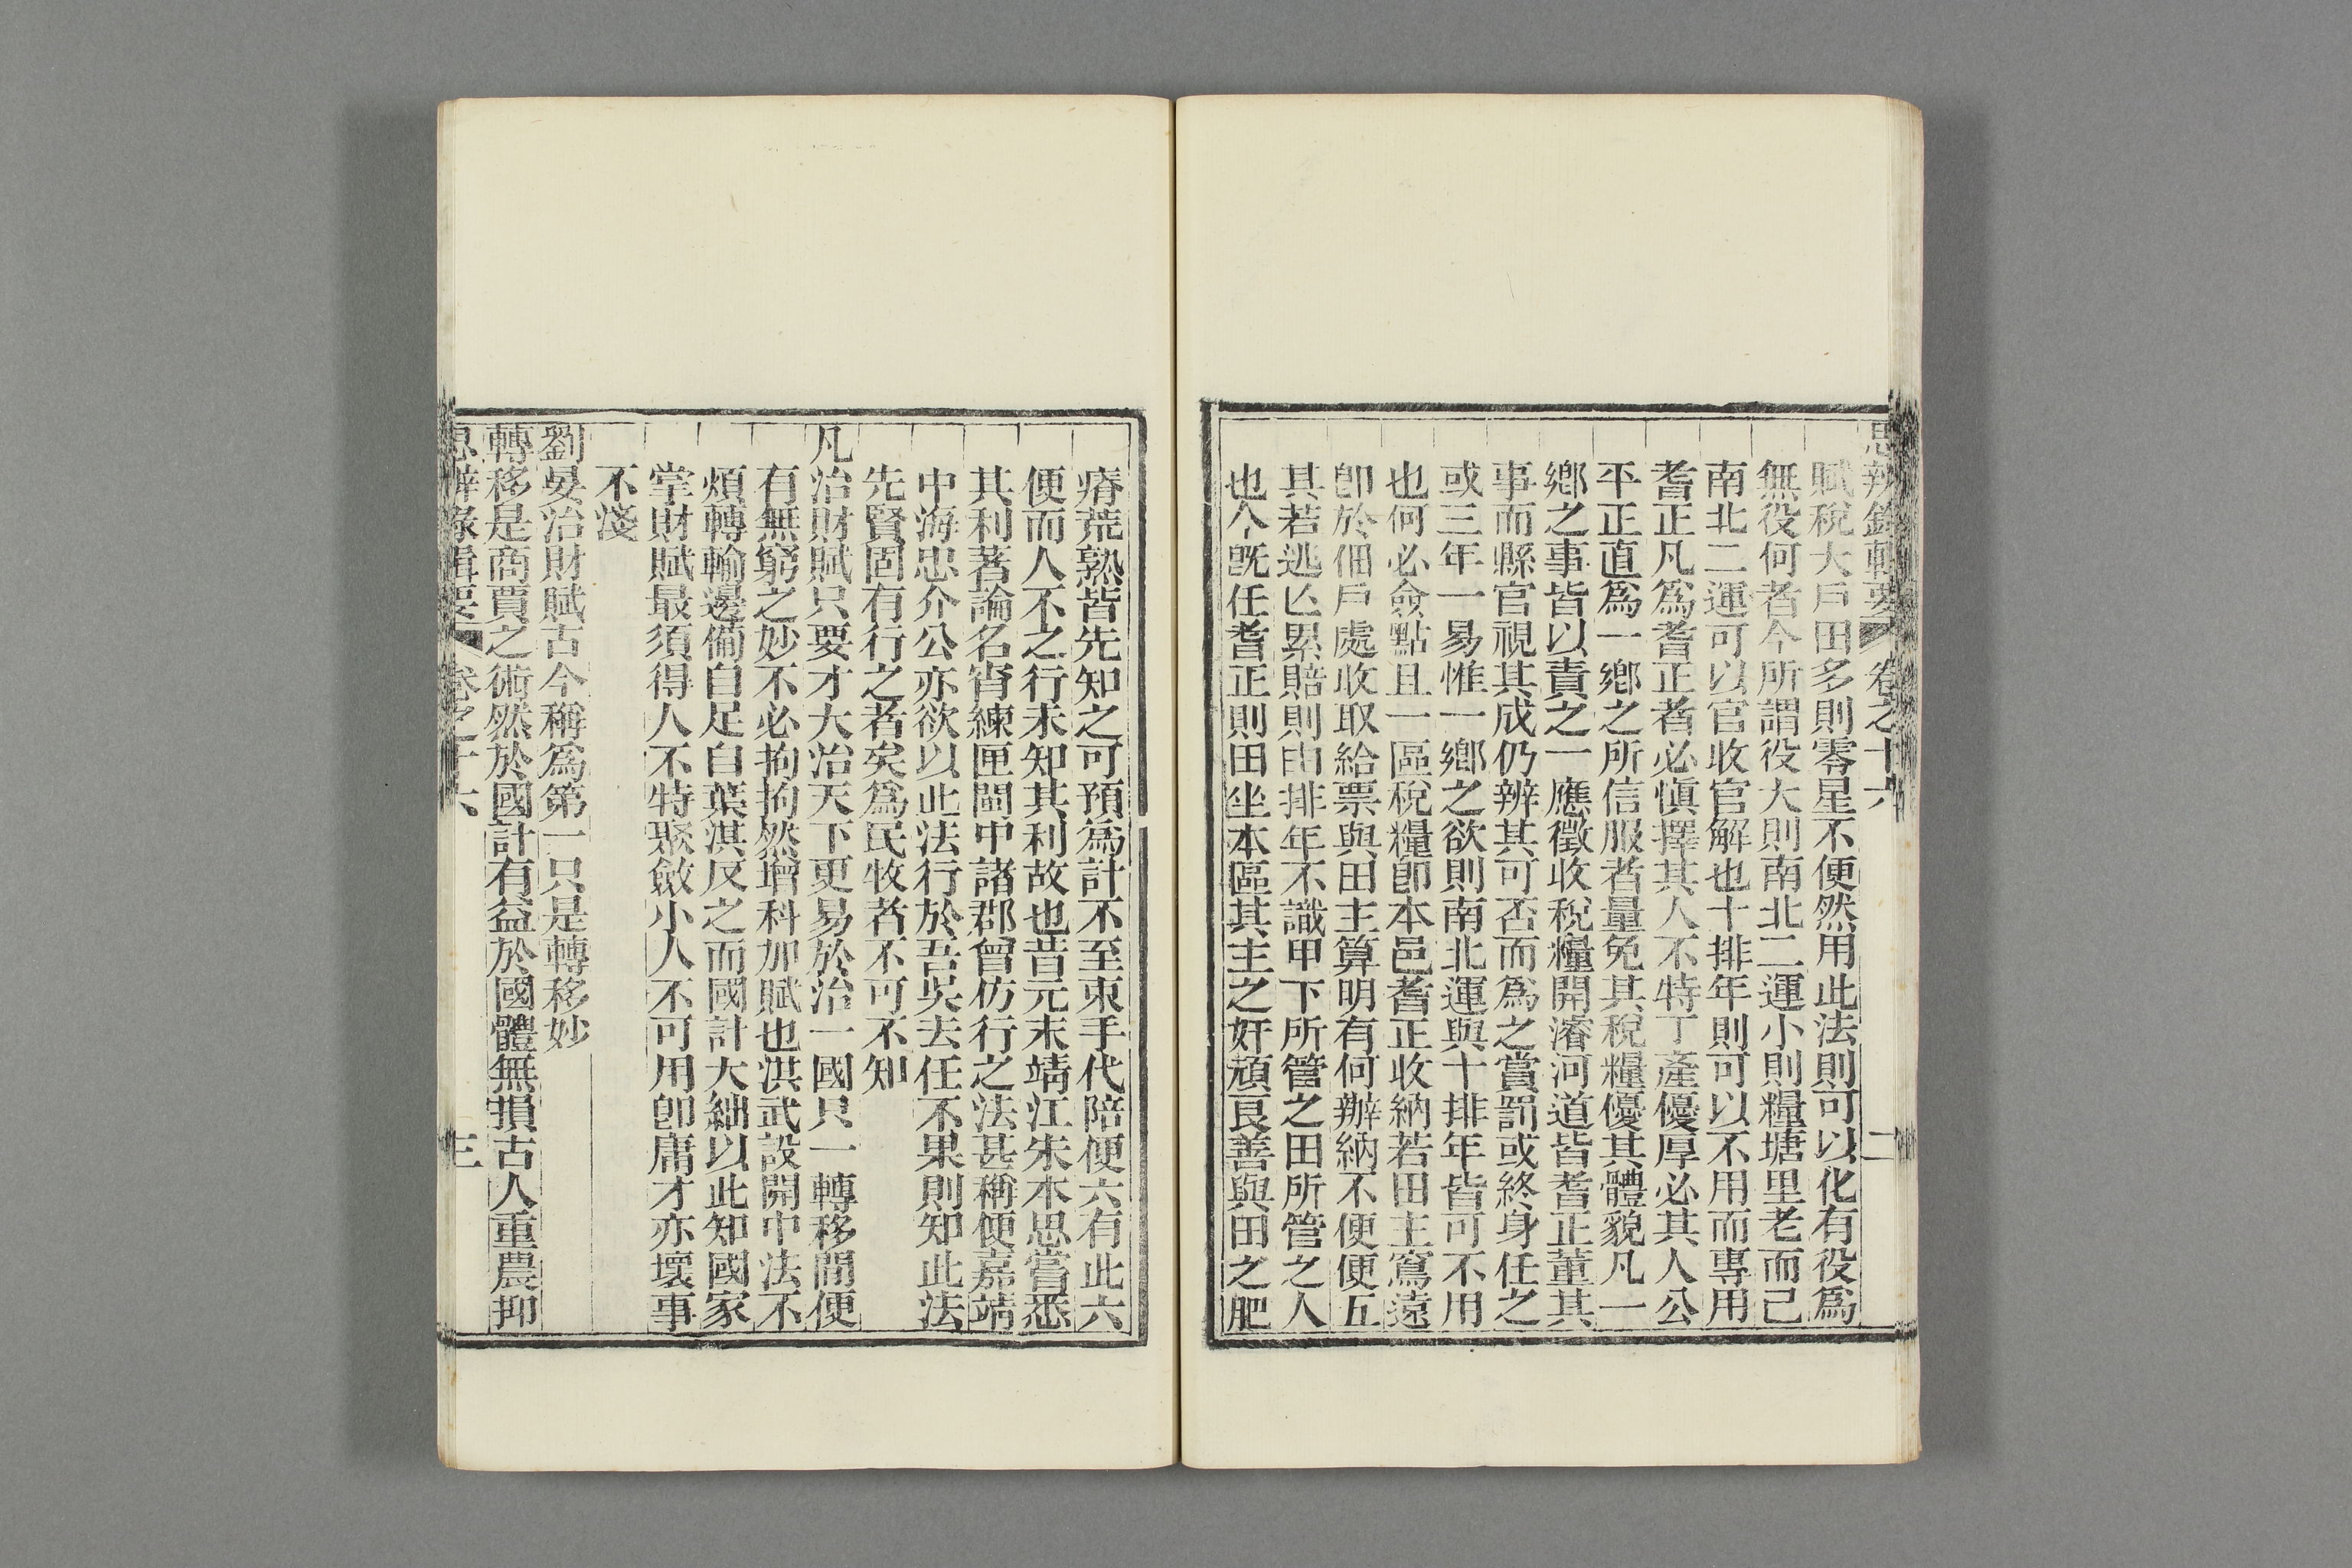 思辨錄輯要 卷之十六 二
賦稅大戶田多則零星不便然用此法則可以化有役爲
無役何者今所謂役大則南北二運小則糧塘里老而已
南北二運可以官收官解也十排年則可以不用而專用
耆正凡爲耆正者必愼擇其人不特丁產優厚必其人公
平正直爲一鄉之所信服者量免其稅糧優其體貌凡一
鄉之事皆以責之一應徵收稅糧開濬河道皆耆正董其
事而縣官視其成仍辨其可否而爲之賞罰或終身任之
或三年一易惟一鄉之欲則南北運與十排年皆可不用
也何必僉點且一區稅糧卽本邑耆正收納若田主窵遠
卽於佃戶處收取給票與田主算明有何辦納不便便五
其若逃亾累賠則由排年不識甲下所管之田所管之人
也今旣任耆正則田坐本區其主之奸頑良善與田之肥
瘠荒熟皆先知之可預爲計不至束手代陪便六有此六
便而人不之行未知其利故也昔元末靖江朱本思嘗悉
其利著論名宵練匣閩中諸郡曾仿行之法甚稱便嘉靖
中海忠介公亦欲以此法行於吾吳去任不果則知此法
先賢固有行之者矣爲民牧者不可不知
凡治財賦只要才大治天下更易於治一國只一轉移間便
有無窮之妙不必拘拘然增科加賦也洪武設開中法不
煩轉輸邊備自足自葉淇反之而國計大絀以此知國家
掌財賦最須得人不特聚斂小人不可用卽庸才亦壞事
不淺
劉晏治財賦古今稱爲第一只是轉移妙
轉移是商賈之術然於國計有益於國體無損古人重農抑
思辨錄輯要 卷之十六 三